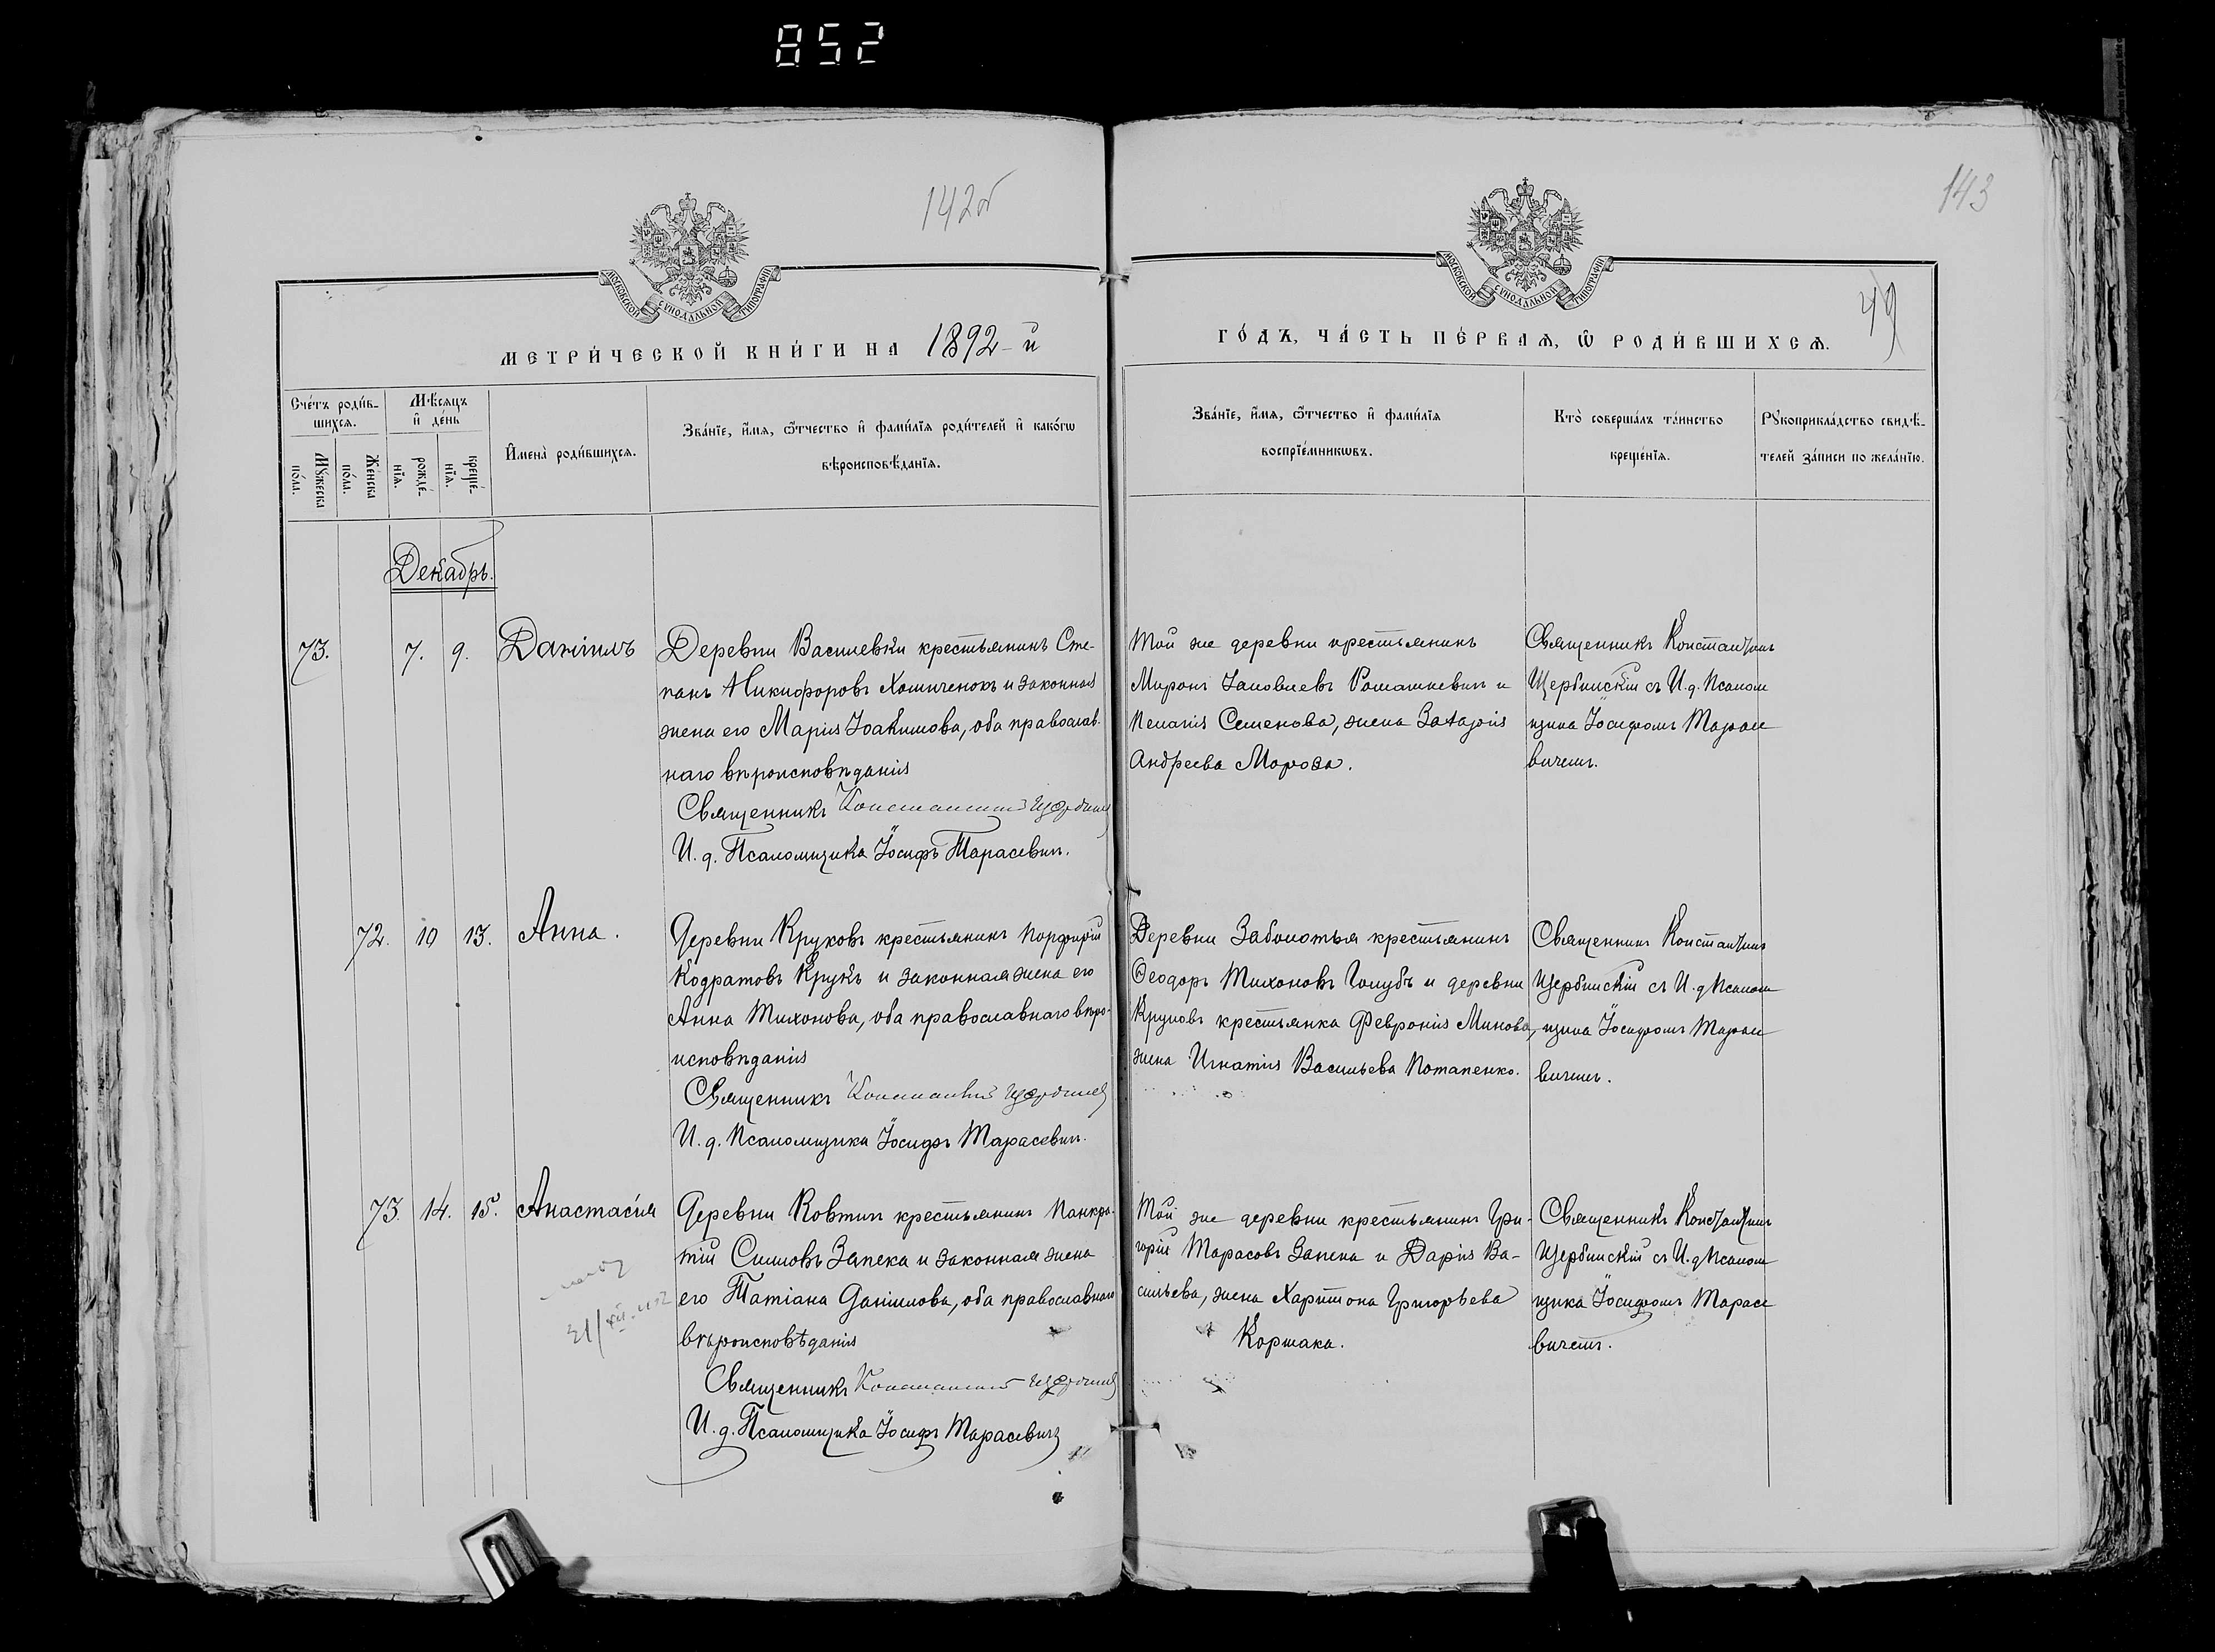 852
142об
143
49
МОСКОВСКОЙ СѴНОДАЛЬНОЙ ТИПОГРАФІИ
МОСКОВСКОЙ СѴНОДАЛЬНОЙ ТИПОГРАФІИ
МЕТРИ́ЧЕСКОЙ КНИ́ГИ НА 1892-й
ГО́ДЪ, ЧА́СТЬ ПЕ́РВАѦ, Ѡ РОДИ́ВШИХСѦ.
Сче́тъ роди́в-
шихсѧ.
Мꙋ́жеска
по́ла.
Же́нска
по́ла.
Мѣ́сѧцъ
и҆ де́нь
рожде́-
нїѧ.
креще́-
нїѧ.
И҆мена̀ роди́вшихсѧ.
Зва́нїе, и҆́мѧ, ѻ҆́тчество и҆ фами́лїѧ роди́телей и҆ како́гѡ
вѣроисповѣ́данїѧ.
Зва́нїе, и҆́мѧ, ѻ҆́тчество и҆ фами́лїѧ
воспрїе́мникѡвъ.
Кто̀ соверша́лъ та́инство
креще́нїѧ.
Рꙋкоприкла́дство свидѣ́-
телей за́писи по жела́нїю.
Декабрь.
73. 7. 9. Даніилъ
Деревни Василевки крестьянинъ Сте-
панъ Никифоровъ Хомиченокъ и законная
жена его Марія Іоакимова, оба православ-
наго вѣроисповѣданія
Священникъ Константинъ Щербинскій
И. д. Псаломщика Іосифъ Тарасевич.
Той же деревни крестьянинъ
Миронъ Іаковлевъ Ромашкевич и
Пелагія Семенова, жена Захарія
Андреева Мороза.
Священникъ Константинъ
Щербинскій съ И. д. Псалом
щика Іосифомъ Тарасе
вичемъ.
72. 10 13. Анна.
Деревни Круковъ крестьянинъ Порфирій
Кодратовъ Крукъ и законная жена его
Анна Тихонова, оба православнаго вѣро-
исповѣданія
Священникъ Константинъ Щербинскій
И. д. Псаломщика Іосифъ Тарасевич.
Деревни Заболотья крестьянинъ
Ѳеодоръ Тихоновъ Голубъ и деревни
Круковъ крестьянка Февронія Минова,
жена Игнатія Васильева Потапенко.
Священникъ Константинъ
Щербинскій съ И. д Псалом
щика Іосифомъ Тарасе
вичемъ.
73. 14. 15. Анастасія
Деревни Ковтич крестьянинъ Панкра-
тій Симовъ Запека и законная жена
его Татіана Даніилова, оба православнаго
вѣроисповѣданія
Священникъ Константинъ Щербинскій
И. д. Псаломщика Іосифъ Тарасевичъ
Той же деревни крестьянинъ Гри-
горій Тарасовъ Запека и Дарія Ва-
сильева, жена Харитона Григорьева
Коржака.
Священникъ Константинъ
Щербинскій съ И. д Псалом
щика Іосифомъ Тарасе
вичемъ.